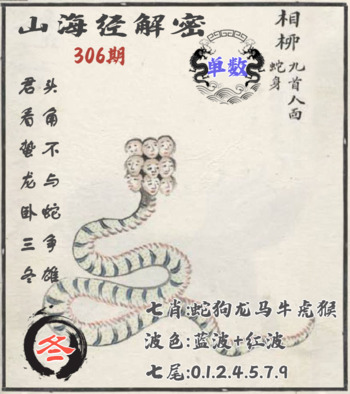 山海经解密
306期
相柳
九首人面
蛇身
单数
君看蛰龙卧三冬
头角不与蛇争雄
七肖:蛇狗龙马牛虎猴
波色:蓝波+红波
七尾:0.1.2.4.5.7.9
冬